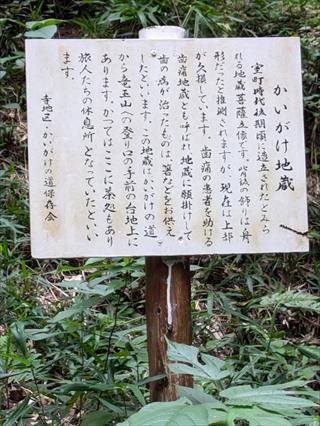 かいがけ地蔵
室町時代後期頃に造立されたとみら
れる地蔵菩薩立像です。背後の飾りは舟
形だったと推測されますが、現在は上部
が欠損しています。歯痛の患者を助ける
歯痛地蔵とも呼ばれ、地蔵に願掛けして
歯の病が治ったものは、箸などをお供え
したといいます。この地蔵はかいがけの道
から竜王山への登り口の手前の台地上に
あります。かつてはここに茶処もあり
旅人たちの休息所となっていたといい
ます。
寺地区・かいがけの道保存会